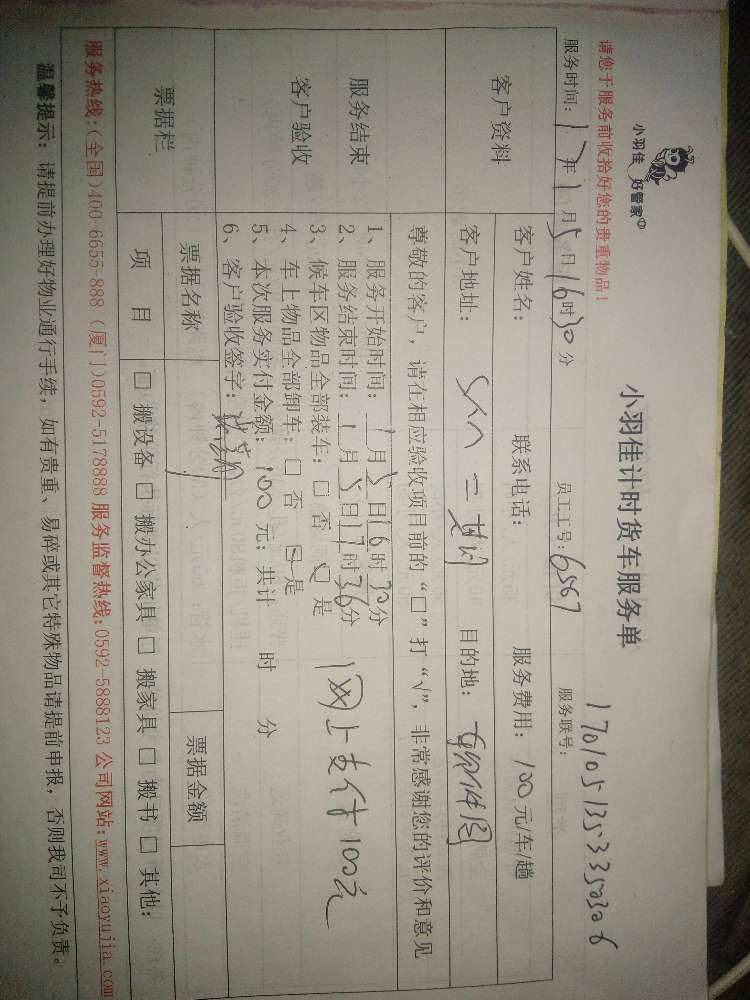 小羽佳 好管家
小羽佳计时货车服务单
1701051353350206
请您于服务前收拾好您的贵重物品！
服务时间：17年1月5日16时30分 员工工号：6567 服务联号：
客户资料
客户姓名： 联系电话： 服务费用：100元/车/趟
客户地址： 二期 目的地：
尊敬的客户，请在相应验收项目前的“□”打“√”，非常感谢您的评价和意见
服务结束
客户验收
1、服务开始时间：1月5日16时30分
2、服务结束时间：1月5日17时36分
3、候车区物品全部装车：□否 □是
4、车上物品全部卸车：□否 □是
5、本次服务实付金额：100元；共计 时 分
6、客户验收签字：
网上支付100元
票据栏
票据名称 票据金额
项 目 □搬设备 □搬办公家具 □搬家具 □搬书 □其他：
服务热线：(全国)400-6655-888 (厦门)0592-5178888 服务监督热线：0592-5888123 公司网站：www.xiaoyujia.com
温馨提示：请提前办理好物业通行手续，如有贵重、易碎或其它特殊物品请提前申报，否则我司不予负责。